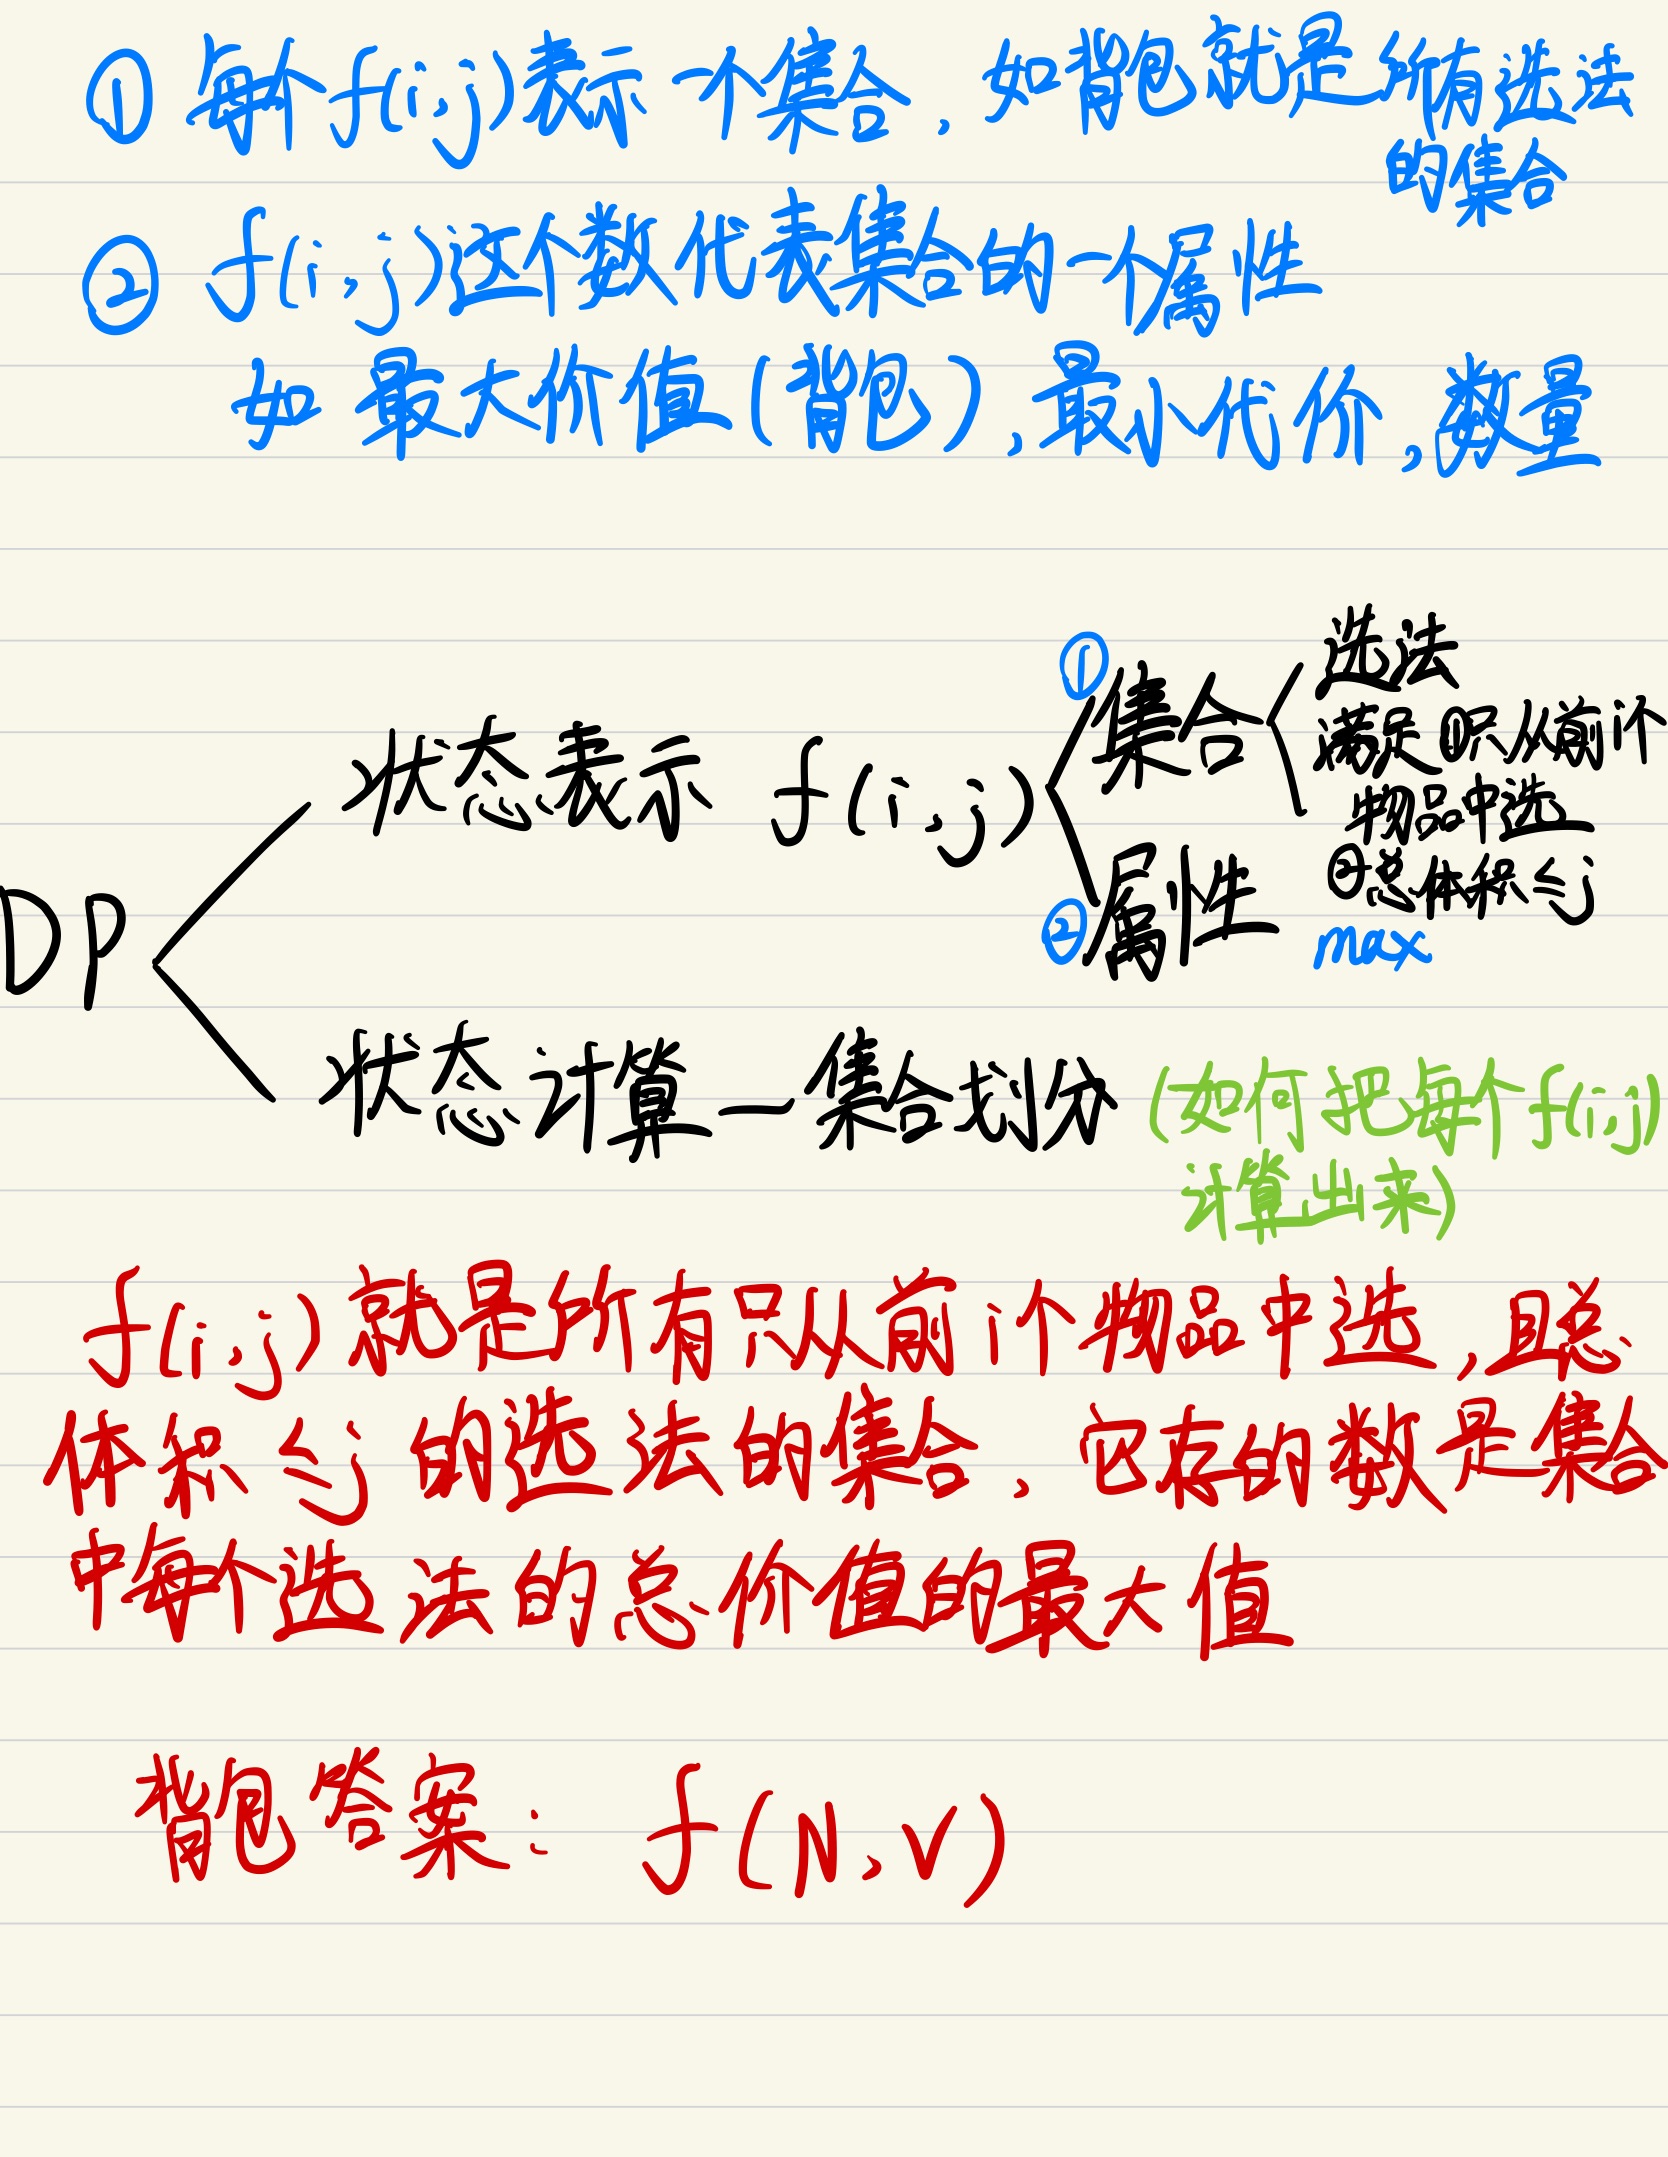 ① 每个f(i,j)表示一个集合,如背包就是所有选法
的集合
② f(i,j)这个数代表集合的一个属性
如最大价值(背包),最小代价,数量
DP
状态表示 f(i,j)
①集合
选法
满足①只从前i个
物品中选
②总体积≤j
②属性 max
状态计算—集合划分(如何把每个f(i,j)
计算出来)
f(i,j)就是所有只从前i个物品中选,且总
体积≤j的选法的集合,它存的数是集合
中每个选法的总价值的最大值
背包答案: f(N,V)